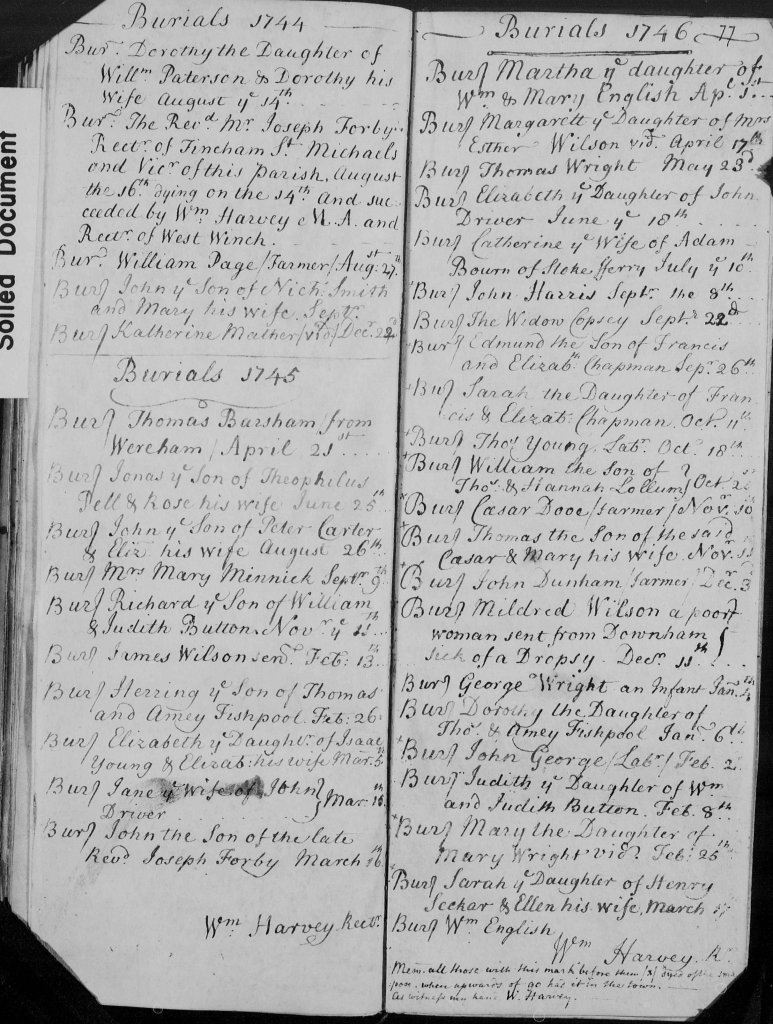 Soiled Document
Burials 1744
Bur.d Dorothy the Daughter of
Will.m Paterson & Dorothy his
Wife August y.e 14.th
Bur.d The Rev.d Mr. Joseph Forby
Rect.r of Fincham St. Michaels
and Vic.r of this Parish, August
the 16.th dying on the 14.th And suc
ceeded by W.m Harvey M.A. and
Rect.r of West Winch.
Bur.d William Page/Farmer/Aug.st 27.th
Bur.d John y.e Son of Nich: Smith
and Mary his wife. Sept.r
Bur.d Katherine Mather/vid/Dec.r 22.d
Burials 1745
Bur.d Thomas Bursham/from
Wereham/April 21.st
Bur.d Jonas y.e Son of Theophilus
Pell & Rose his wife June 25.th
Bur.d John y.e Son of Peter Carter
& Eliz: his wife August 26.th
Bur.d Mrs Mary Minnick Sept.r 9.th
Bur.d Richard y.e Son of William
& Judith Button Nov.r y.e 11.th
Bur.d James Wilson sen.r Feb: 13.th
Bur.d Herring y.e Son of Thomas
and Amey Fishpool. Feb: 26
Bur.d Elizabeth y.e Daught.r of Isaac
Young & Elizab: his wife Mar. 5.th
Bur.d Jane y.e Wife of John
Driver } Mar.
Bur.d John the Son of the late
Rev.d Joseph Forby March 16.th
W.m Harvey Rect.r
Burials 1746 77
Bur.d Martha y.e daughter of
W.m & Mary English Ap: 1.st
Bur.d Margarett y.e Daughter of Mrs
Esther Wilson vid. April 17.th
Bur.d Thomas Wright May 23.d
Bur.d Elizabeth y.e Daughter of John
Driver June y.e 18.th
Bur.d Catherine y.e Wife of Adam
Bourn of Stoke fferry July y.e 10.th
Bur.d John Harris Sept.r the 8.th
Bur.d The Widow Copsey Sept.r 22.d
Bur.d Edmund the Son of Francis
and Elizab.th Chapman Sep.r 26.th
Bur.d Sarah the Daughter of Fran
cis & Elizab: Chapman. Oct. 11.th
x Bur.d Tho.s Young. Lab.r Oct. 18.th
x Bur.d William the Son of }
Tho.s & Hannah Lollum } Oct.
x Bur.d Cæsar Dooe/farmer/Nov.r 10
x Bur.d Thomas the Son of the said
Cæsar & Mary his wife. Nov.r
x Bur.d John Dunham/farmer/Dec.r 3
Bur.d Mildred Wilson a poor
woman sent from Downham
sick of a Dropsy. Dec.r 11.th
Bur.d George Wright an Infant Jan. 4.th
Bur.d Dorothy the Daughter of
Tho.s & Amey Fishpool Jan.y 6.th
x Bur.d John George/Lab.r/ Feb. 2
Bur.d Judith y.e Daughter of W.m
and Judith Button. Feb. 8.th
x Bur.d Mary the Daughter of
Mary Wright vid. Feb: 25.th
Bur.d Sarah y.e Daughter of Henry
Seckar & Ellen his wife, March 17
Bur.d W.m English
W.m Harvey. R.r
Mem. all those with this mark before them [x] dyed of the small
pox, when upwards of 90 had it in the town.
As witness my hand W. Harvey.